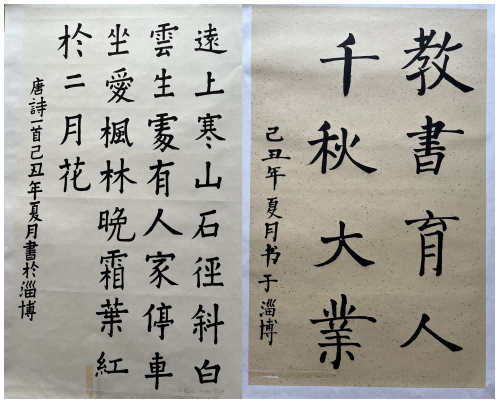 遠上寒山石徑斜白
雲生處有人家停車
坐愛楓林晚霜葉紅
於二月花
唐詩一首己丑年夏月書於淄博
教書育人
千秋大業
己丑年夏月书于淄博